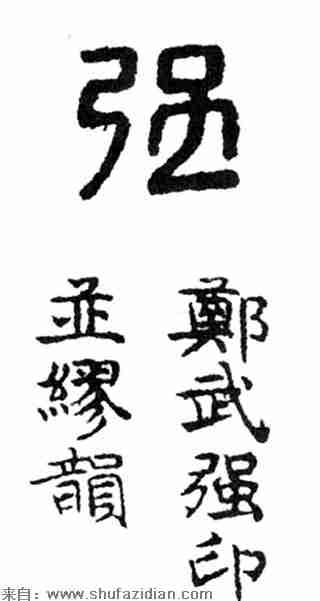 强
鄭武强印
並繆韻
来自：www.shufazidian.com